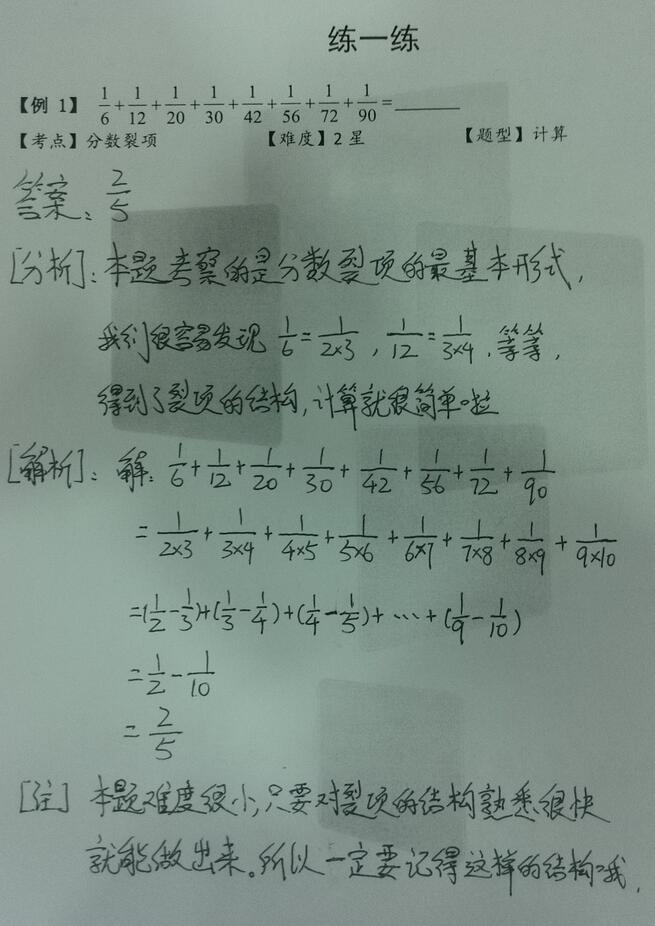 练一练
【例 1】 1/6+1/12+1/20+1/30+1/42+1/56+1/72+1/90=______
【考点】分数裂项 【难度】2 星 【题型】计算
答案: 2/5
[分析]: 本题考察的是分数裂项的最基本形式,
我们很容易发现 1/6=1/2×3, 1/12=1/3×4, 等等,
得到了裂项的结构,计算就很简单啦
[解析]: 解: 1/6+1/12+1/20+1/30+1/42+1/56+1/72+1/90
=1/2×3+1/3×4+1/4×5+1/5×6+1/6×7+1/7×8+1/8×9+1/9×10
=(1/2-1/3)+(1/3-1/4)+(1/4-1/5)+…+(1/9-1/10)
=1/2-1/10
=2/5
[注] 本题难度很小,只要对裂项的结构熟悉很快
就能做出来。所以一定要记得这样的结构哦,